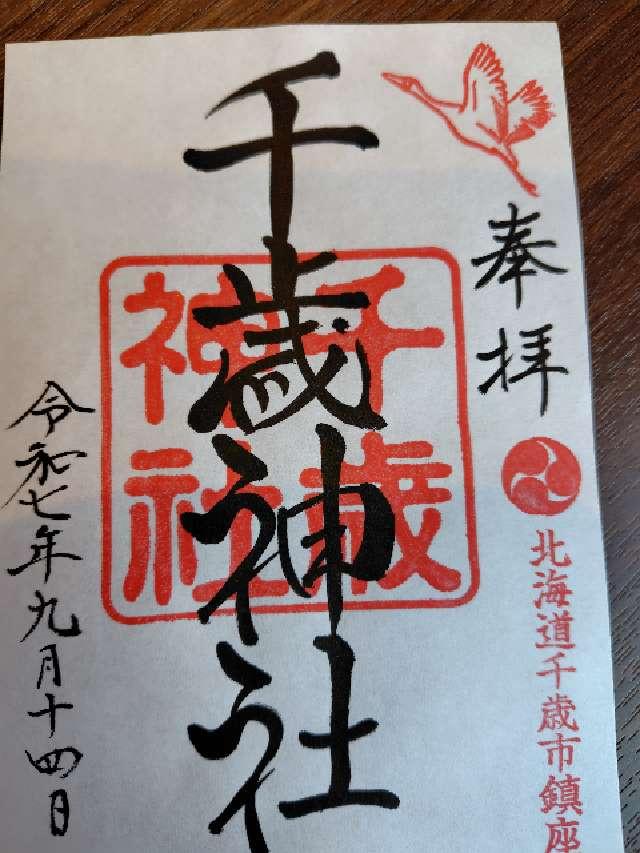 奉拝
北海道千歳市鎮座
千歳神社
千歳
神社
令和七年九月十四日